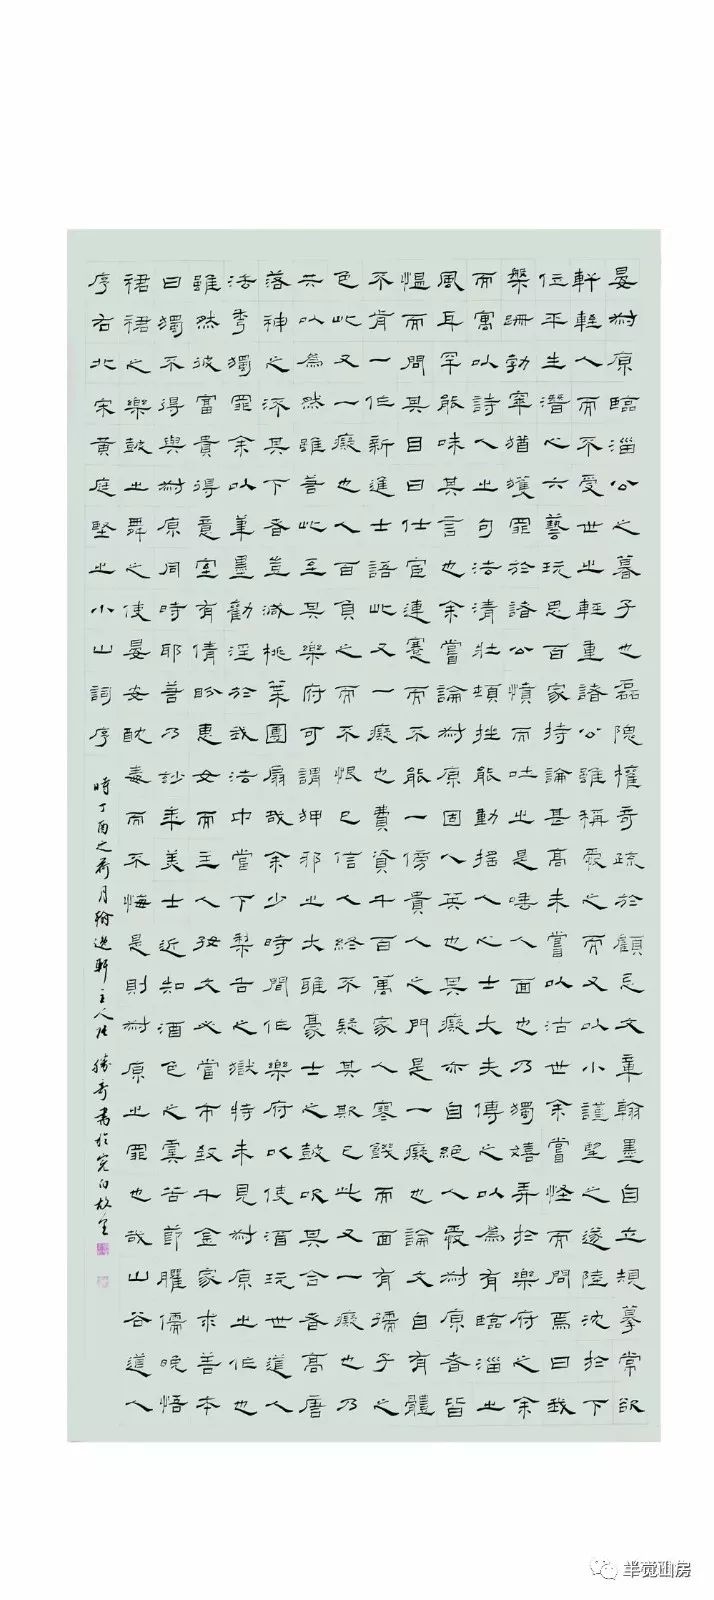 晏叔原臨淄公之暮子也磊隗權奇疏於顧忌文章翰墨自立規摹常欲
軒輊人而不受世之輕重諸公雖稱愛之而又以小謹望之遂陸沈於下
位平生潛心六藝玩思百家持論甚高未嘗以沽世余嘗怪而問焉曰我
槃跚勃窣猶獲罪於諸公憤而吐之是唾人面也乃獨嬉弄於樂府之余
而寓以詩人之句法清壯頓挫能動搖人心士大夫傳之以為有臨淄之
風耳罕能味其言也余嘗論叔原固人英也其癡亦自絕人愛叔原者皆
慍而問其目曰仕宦連蹇而不能一傍貴人之門是一癡也論文自有體
不肯一作新進士語此又一癡也費資千百萬家人寒饑而面有孺子之
色此又一癡也人百負之而不恨已信人終不疑其欺已此又一癡也乃
共以為然雖若此至其樂府可謂狎邪之大雅豪士之鼓吹其合者高唐
落神之流其下者豈減桃葉團扇哉余少時間作樂府以使酒玩世道人
法秀獨罪余以筆墨勸淫於我法中當下犁舌之獄特未見叔原之作也
雖然彼富貴得意室有倩盼惠女而主人好文必當市致千金家求善本
曰獨不得與叔原同時耶若乃妙年美士近知酒色之虞苦節臞儒晚悟
裙裾之樂鼓之舞之使晏安酖毒而不悔是則叔原之罪也哉山谷道人
序右北宋黃庭堅之小山詞序 時丁酉之荷月翰逸軒主人張勝奇書於完白故里
半觉山房